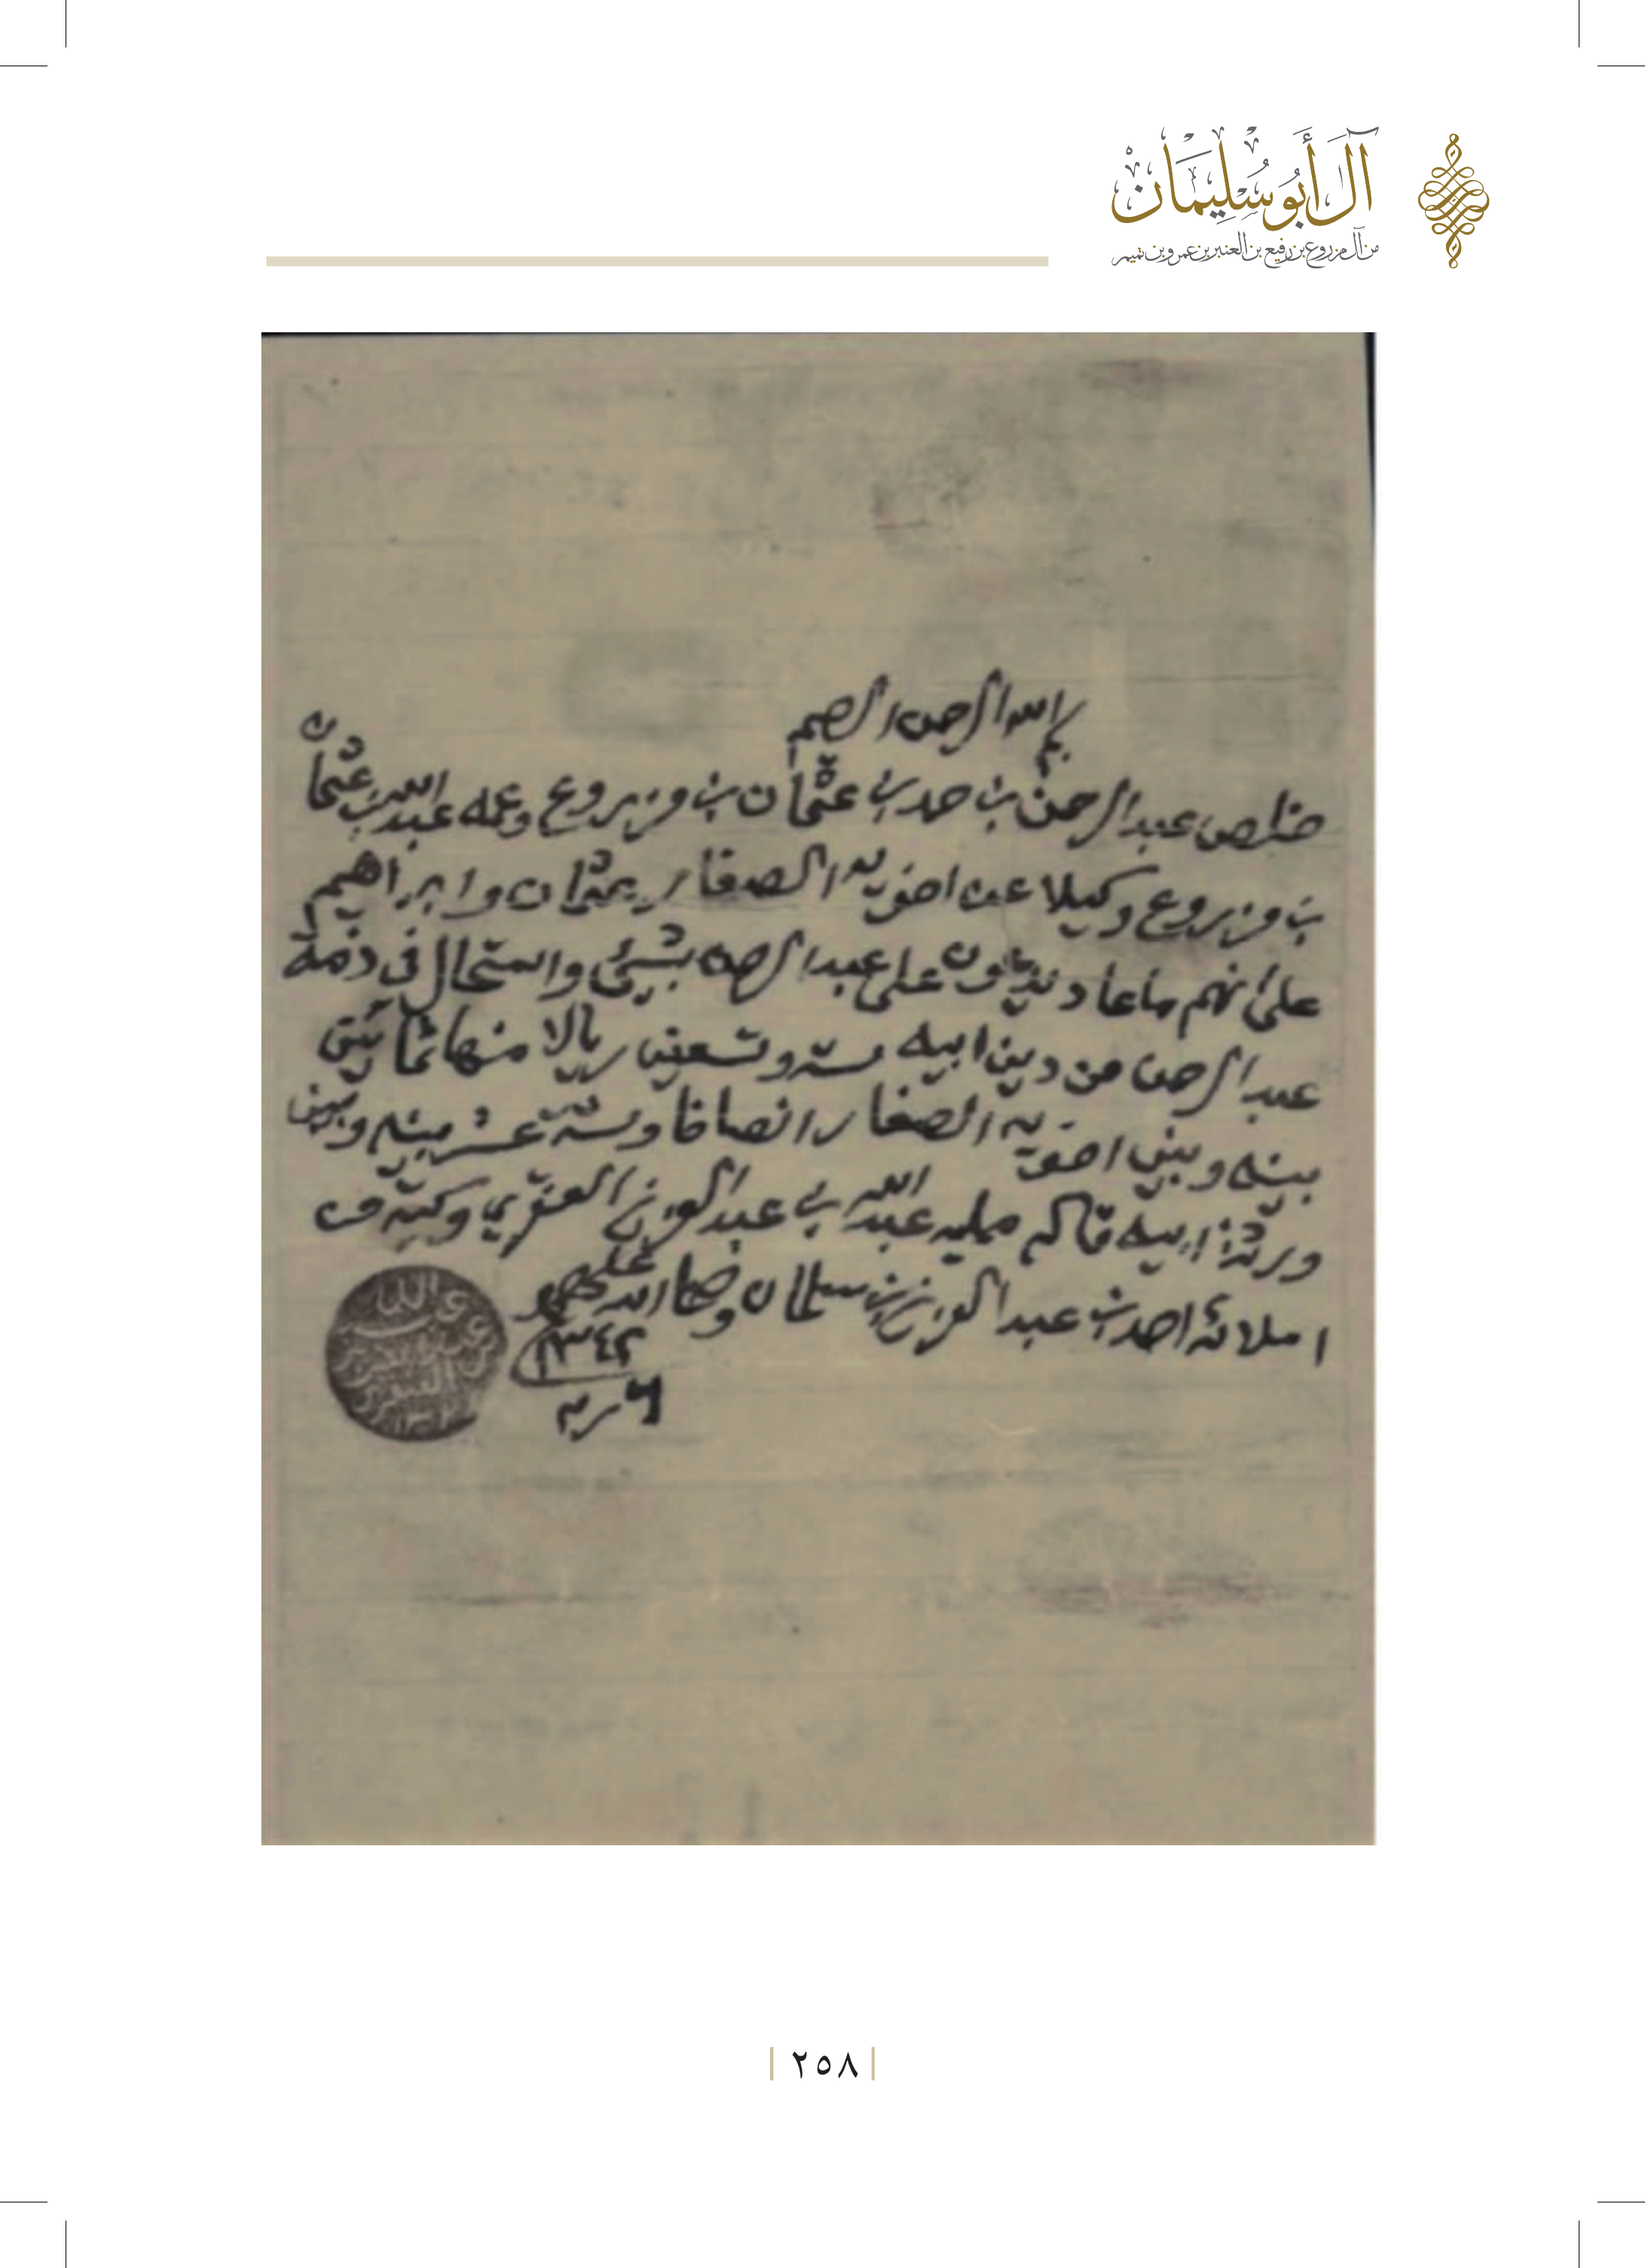 آل أبو سليمان
من آل مزروع بن رفيع بن العنبر بن عمرو بن تميم
بسم الله الرحمن الرحيم
تخالص عبدالرحمن بن حمد بن عثمان بن مزروع وعمه عبدالله بن عثمان
بن مزروع وكيلا عن اخويه الصغار عثمان وابراهيم
على انهم ماعاد يدعون على عبدالرحمن بشيء والمتحال في ذمة
عبدالرحمن من دين ابيه ستة وتسعين ريالا منها ثمانين
بينه وبين اخويه الصغار انصافا وستة عشر بينه وبين
ورثة ابيه قاله ممليه عبدالله بن عبدالعزيز العنقري وكتبه من
املائه احمد بن عبدالعزيز بن سلمان وصلى الله على محمد
١٣٤٢
٢٥٨